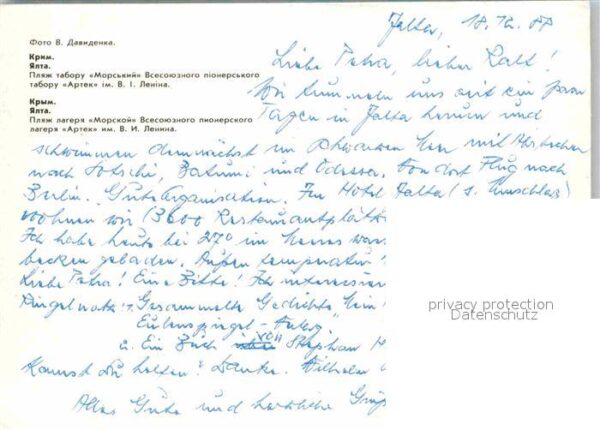 Фото В. Давиденка.
Крим.
Ялта.
Пляж табору «Морський» Всесоюзного піонерського
табору «Артек» ім. В. І. Леніна.
Крым.
Ялта.
Пляж лагеря «Морской» Всесоюзного пионерского
лагеря «Артек» им. В. И. Ленина.
Jalta, 18.
Liebe Petra, lieber Ralf!
Wir tummeln uns seit ein paar
Tagen in Jalta herum und
schwimmen demnächst im Schwarzen Meer mit Abstechern
nach Sotschi, Batumi und Odessa. Von dort Flug nach
Berlin. Gute Organisation. Im Hotel Jalta (s. Umschlag)
wohnen wir (3600 Restaurantplätze
Ich habe heute bei 27° im Meeres
becken gebaden. Außentemperatur
Liebe Petra! Eine Bitte! Ich interessier
Ringelnatz: Gesammelte Gedichte
Eulenspiegel-Verlag
u. Ein Buch von Stephan H
Kannst Du helfen? Danke. Wilhelm
Alles Gute und herzliche Grüß
privacy protection
Datenschutz